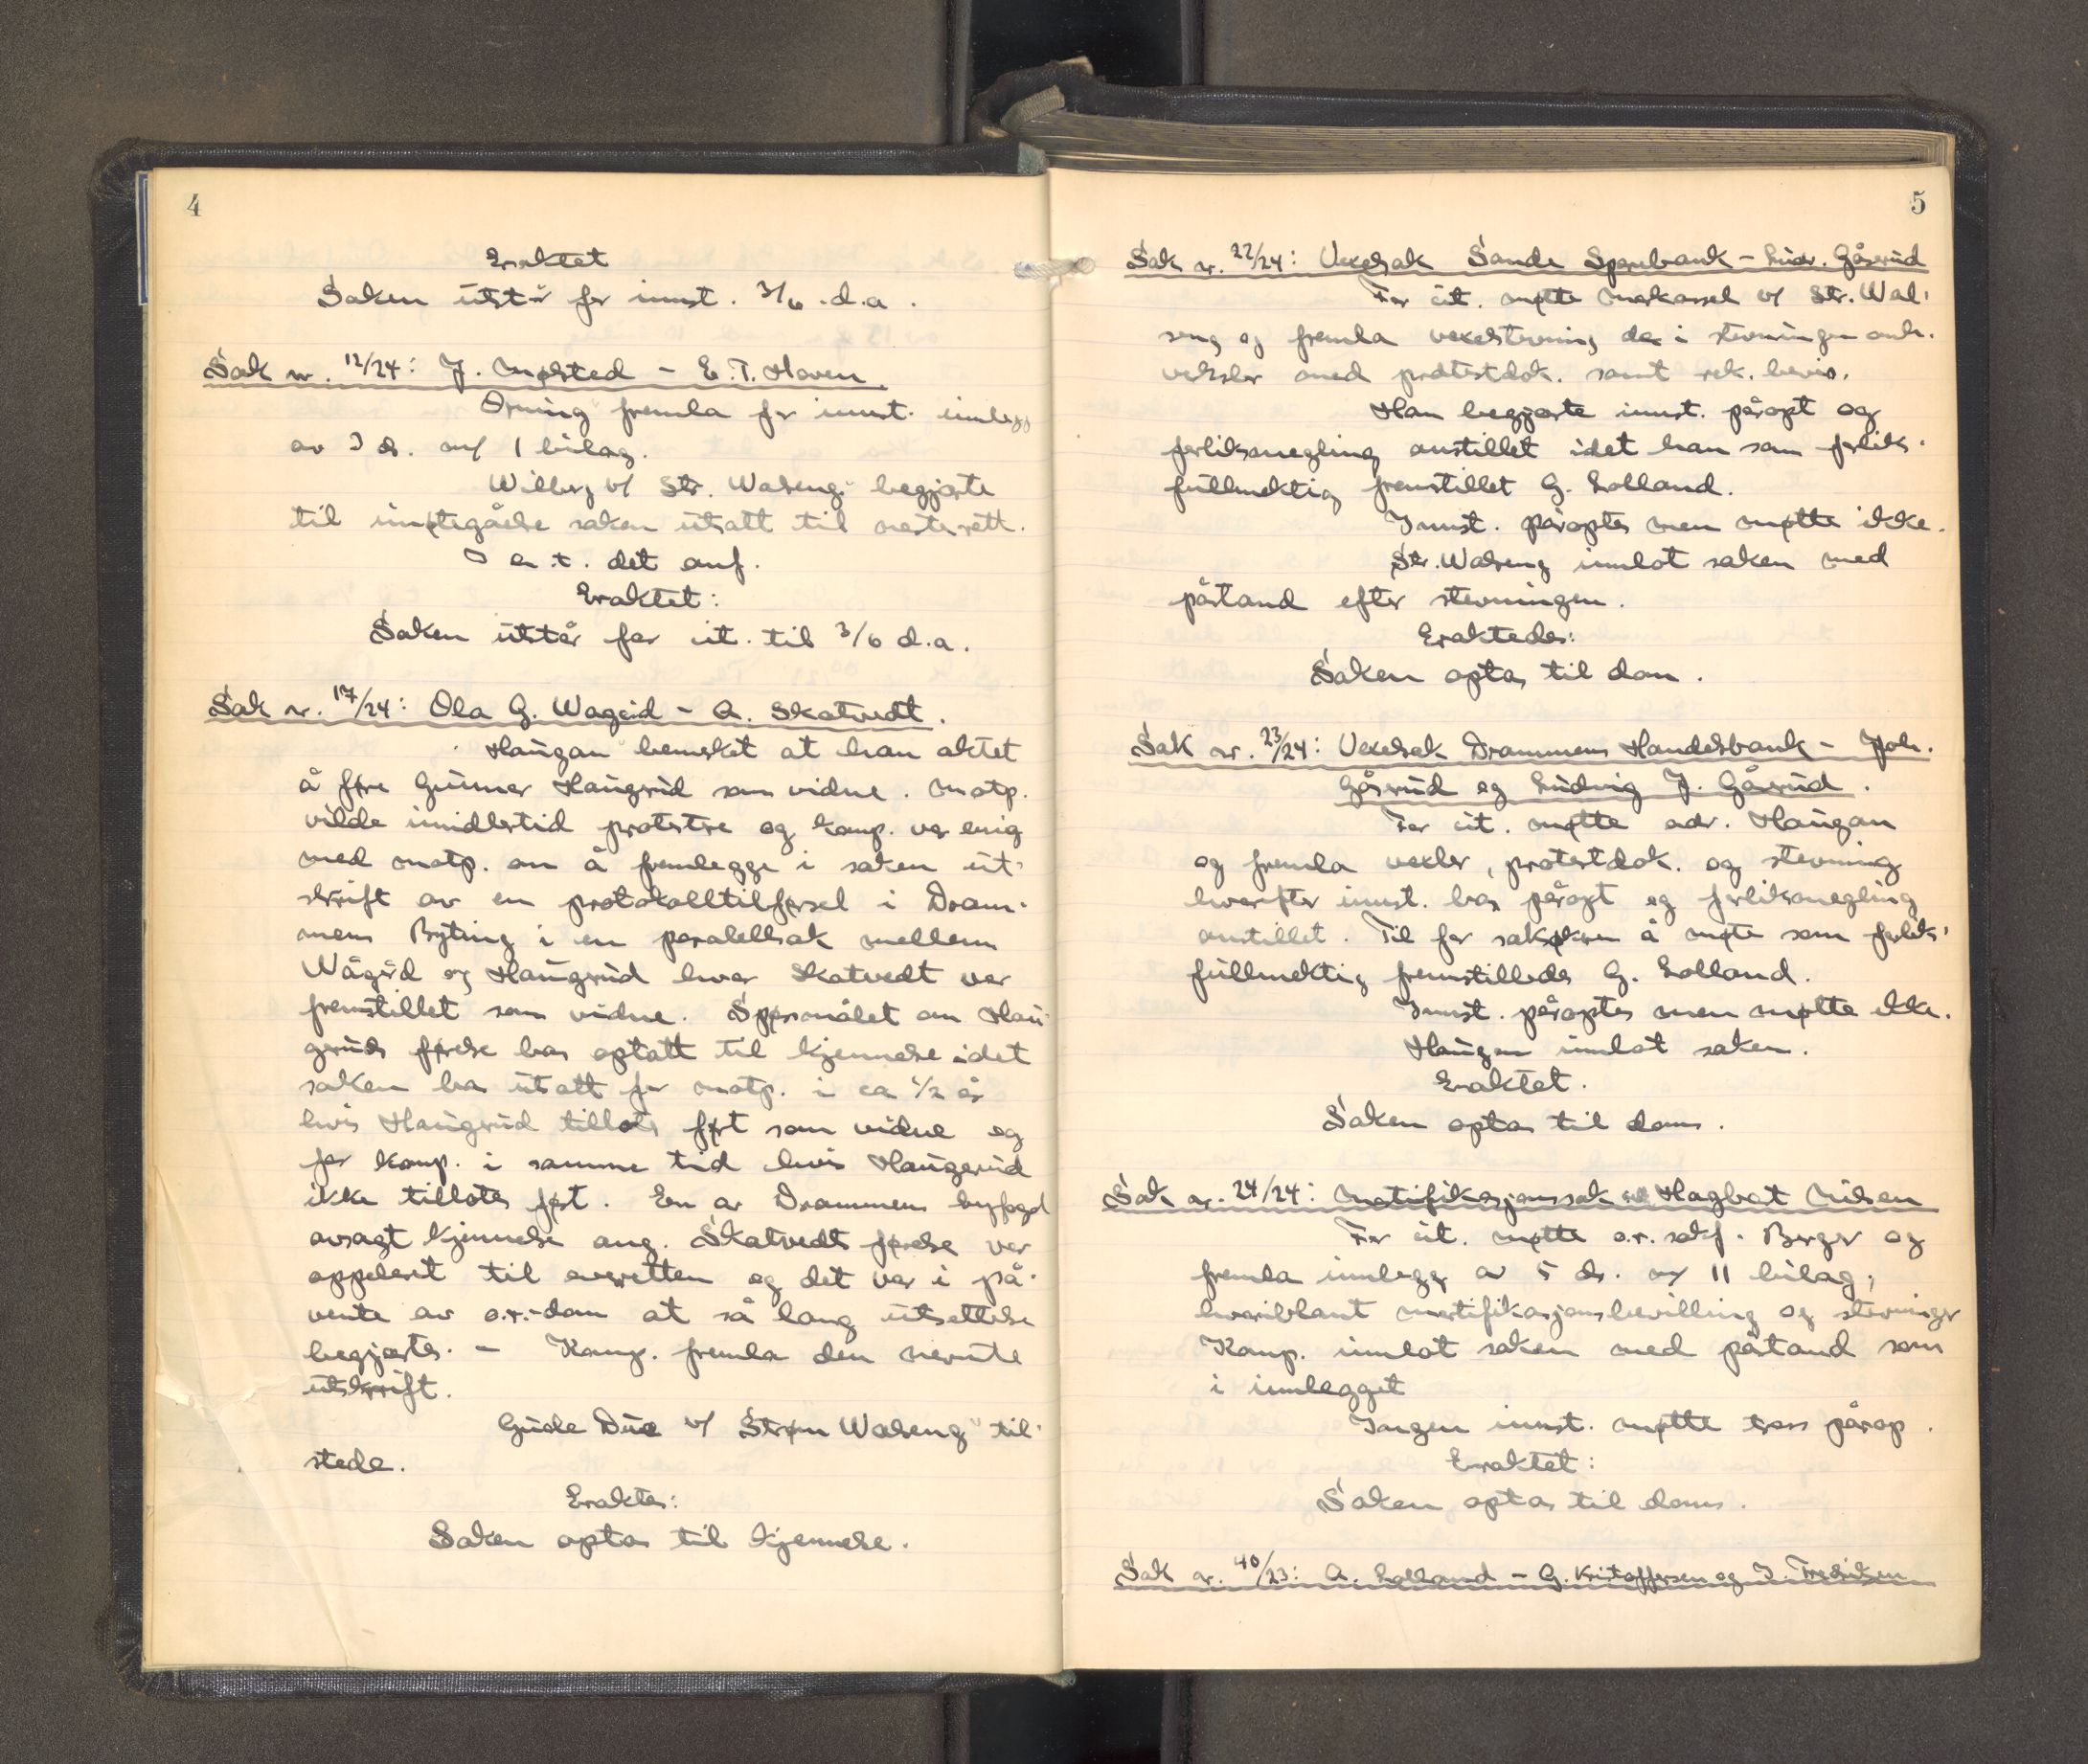 4
Eraktet
Saken utstår for innst. 3/6 .d.a.
Sak nr. 12/24: J. Mølsted - E. T. Haven.
Orning fremla for innst. innlegg
av 3 ds. m/ 1 bilag.
Wilberg v/ Str. Walseng begjærte
til imøtegåelse saken utsatt til næsterett.
O en .t. det anf.
Eraktet:
Saken utstår for cit. til 3/6 d.a.
Sak nr. 17/24: Ola G. Wageid - A. Skatvedt.
Haugan bemerket at han aktet
å føre Gunnar Haugrud som vidne. Motp.
vilde imidlertid protestere og komp. var enig
med motp. om å fremlegge i saken ut-
skrift av en protokolltilførsel i Dram-
mens Byting i en paralellsak mellem
Wågeid og Haugrud hvor Skatvedt var
fremstillet som vidne. Spørsmålet om Hau-
gruds førelse bes optatt til kjennelse idet
saken bes utsatt for motp. i ca 1/2 år
hvis Haugrud tillates ført som vidne og
for komp. i samme tid hvis Haugerud
ikke tillates ført. En av Drammens byfogd
avsagt kjennelse ang. Skatvedts førelse var
appelert til overretten og det var i på-
vente av o.r.-dom at så lang utsettelse
begjærtes. - Komp. fremla den nevnte
utskrift.
Gude Due v/ Strøm Walseng til-
stede.
Eraktes:
Saken optas til kjennelse.
5
Sak nr. 22/24: Vexelsak Sande Sparebank - Ludv. Gåserud
For cit. møtte v/ Str. Wal-
seng og fremla vexelstevning de i stevningen omh.
veksler med protestdok. samt rek. bevis.
Han begjærte innst. påropt og
forliksmegling anstillet idet han som forliks-
fullmektig fremstillet G. Lolland.
Innst. påroptes men møtte ikke.
Str. Walseng innlot saken med
påstand efter stevningen.
Eraktedes:
Saken optas til dom.
Sak nr. 23/24: Vexelsak Drammens Handelsbank - Joh.
Gåsrud og Ludvig J. Gåsrud.
For cit. møtte adv. Haugan
og fremla vexler, protestdok. og stevning
hvorefter innst. bes påropt og forliksmegling
anstillet. Til for saksøkeren å møte som forliks-
fullmektig fremstilledes G. Lolland.
Innst. påroptes men møtte ikke.
Haugan innlot saken.
Eraktet.
Saken optas til doms.
Sak nr. 24/24: Mortifikasjonssak Hagbart Nilsen
For cit. møtte o.r. sakf. Berger og
fremla innlegg av 5 ds. m/ 11 bilag,
hvoriblant mortifikasjonsbevilling og stevninger
Komp. innlot saken med påstand som
i innlegget
Ingen innst. møtte tross pårop.
Eraktet:
Saken optas til doms.
Sak nr. 40/23: A. Lolland - G. Kristoffersen og J. Fredriksen